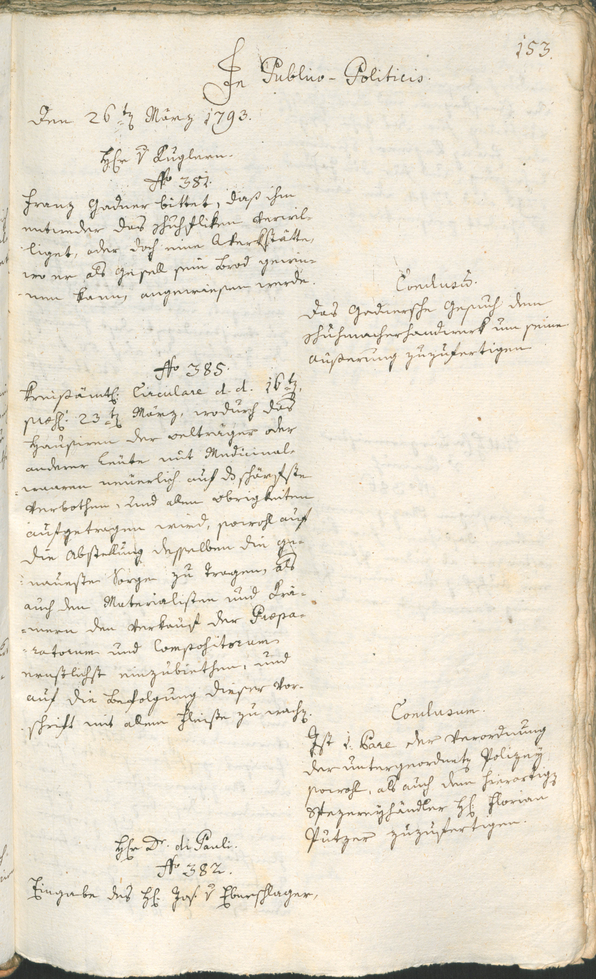 153.
In Publico-Politicis.
Den 26tn März 1793.
Hr. v. Kuglern.
No 381.
Franz Gadner bittet, daß ihm
entweder das Schuhfliken bewil-
liget, oder doch eine Werkstätte,
wo er als Gesell sein Brod gewin-
nen kann, angewiesen werde.
Conclusum.
Das Gadnersche Gesuch dem
Schuhmacherhandwerk um seine
Äußerung zuzufertigen
No 385.
Kreisämtl. Circulare d. d. 16tn,
præs. 23tn März, wodurch das
Hausiren der Oelträger oder
anderer Leute mit Medicinal-
waaren neuerlich auf das schärfste
verbothen, und allen Obrigkeiten
aufgetragen wird, sowohl auf
die Abstellung desselben die ge-
naueste Sorge zu tragen, als
auch den Materialisten und Krä-
mern den Verkauf der Præpa-
ratorum und Compositorum
ernstlichst einzubiethen, und
auf die Befolgung dieser Vor-
schrift mit allem Fleiße zu wach.
Conclusum.
Ist 1. Pare der Verordnung
der untergeordnete Polizey
sowohl, als auch dem hierortig
Spezereyhändler H. Florian
Putzer zuzufertigen.
Hr. Dr. di Pauli.
No 382.
Eingabe des H. Jos. v. Eberschlager,